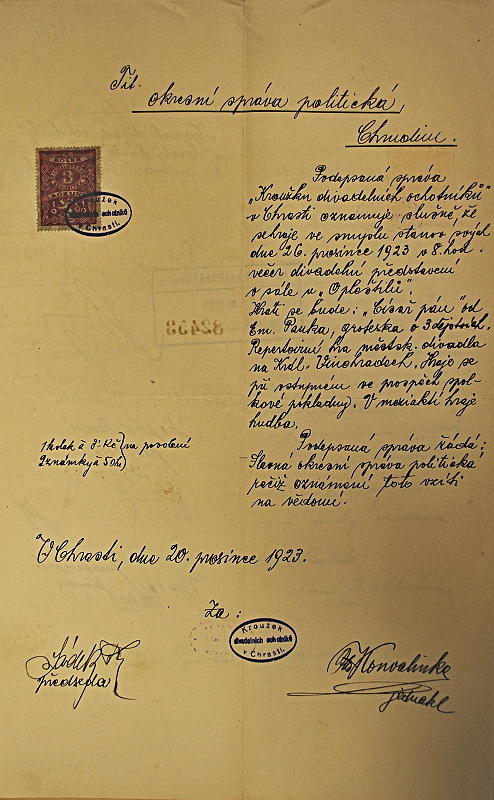 Tit.
okresní správa politická,
Chrudim.
KOLEK
3
Kroužek
divadelních ochotníků
v Chrasti.
Podepsaná správa
"Kroužku divadelních ochotníků"
v Chrasti oznamuje slušně, že
sehraje ve smyslu stanov svých
dne 26. prosince 1923 v 8 hod.
večer divadelní představení
v sále u "Oploštilů".
Hráti se bude: "Císař pán" od
Em. Pauka, groteska o 3 dějstvích.
Repertoirní hra městsk. divadla
na Král. Vinohradech. Hraje se
při vstupném ve prospěch spol-
kové pokladny. V meziaktí hraje
hudba.
82438
1 kolek à 3 Kč
2 známky à 50 h
na povolení
Podepsaná správa žádá:
Slavná okresní správa politická
račiž oznámení toto vzíti
na vědomí.
V Chrasti, dne 20. prosince 1923.
Za:
Kroužek
divadelních ochotníků
v Chrasti.
předseda
Konvalinka
jednatel